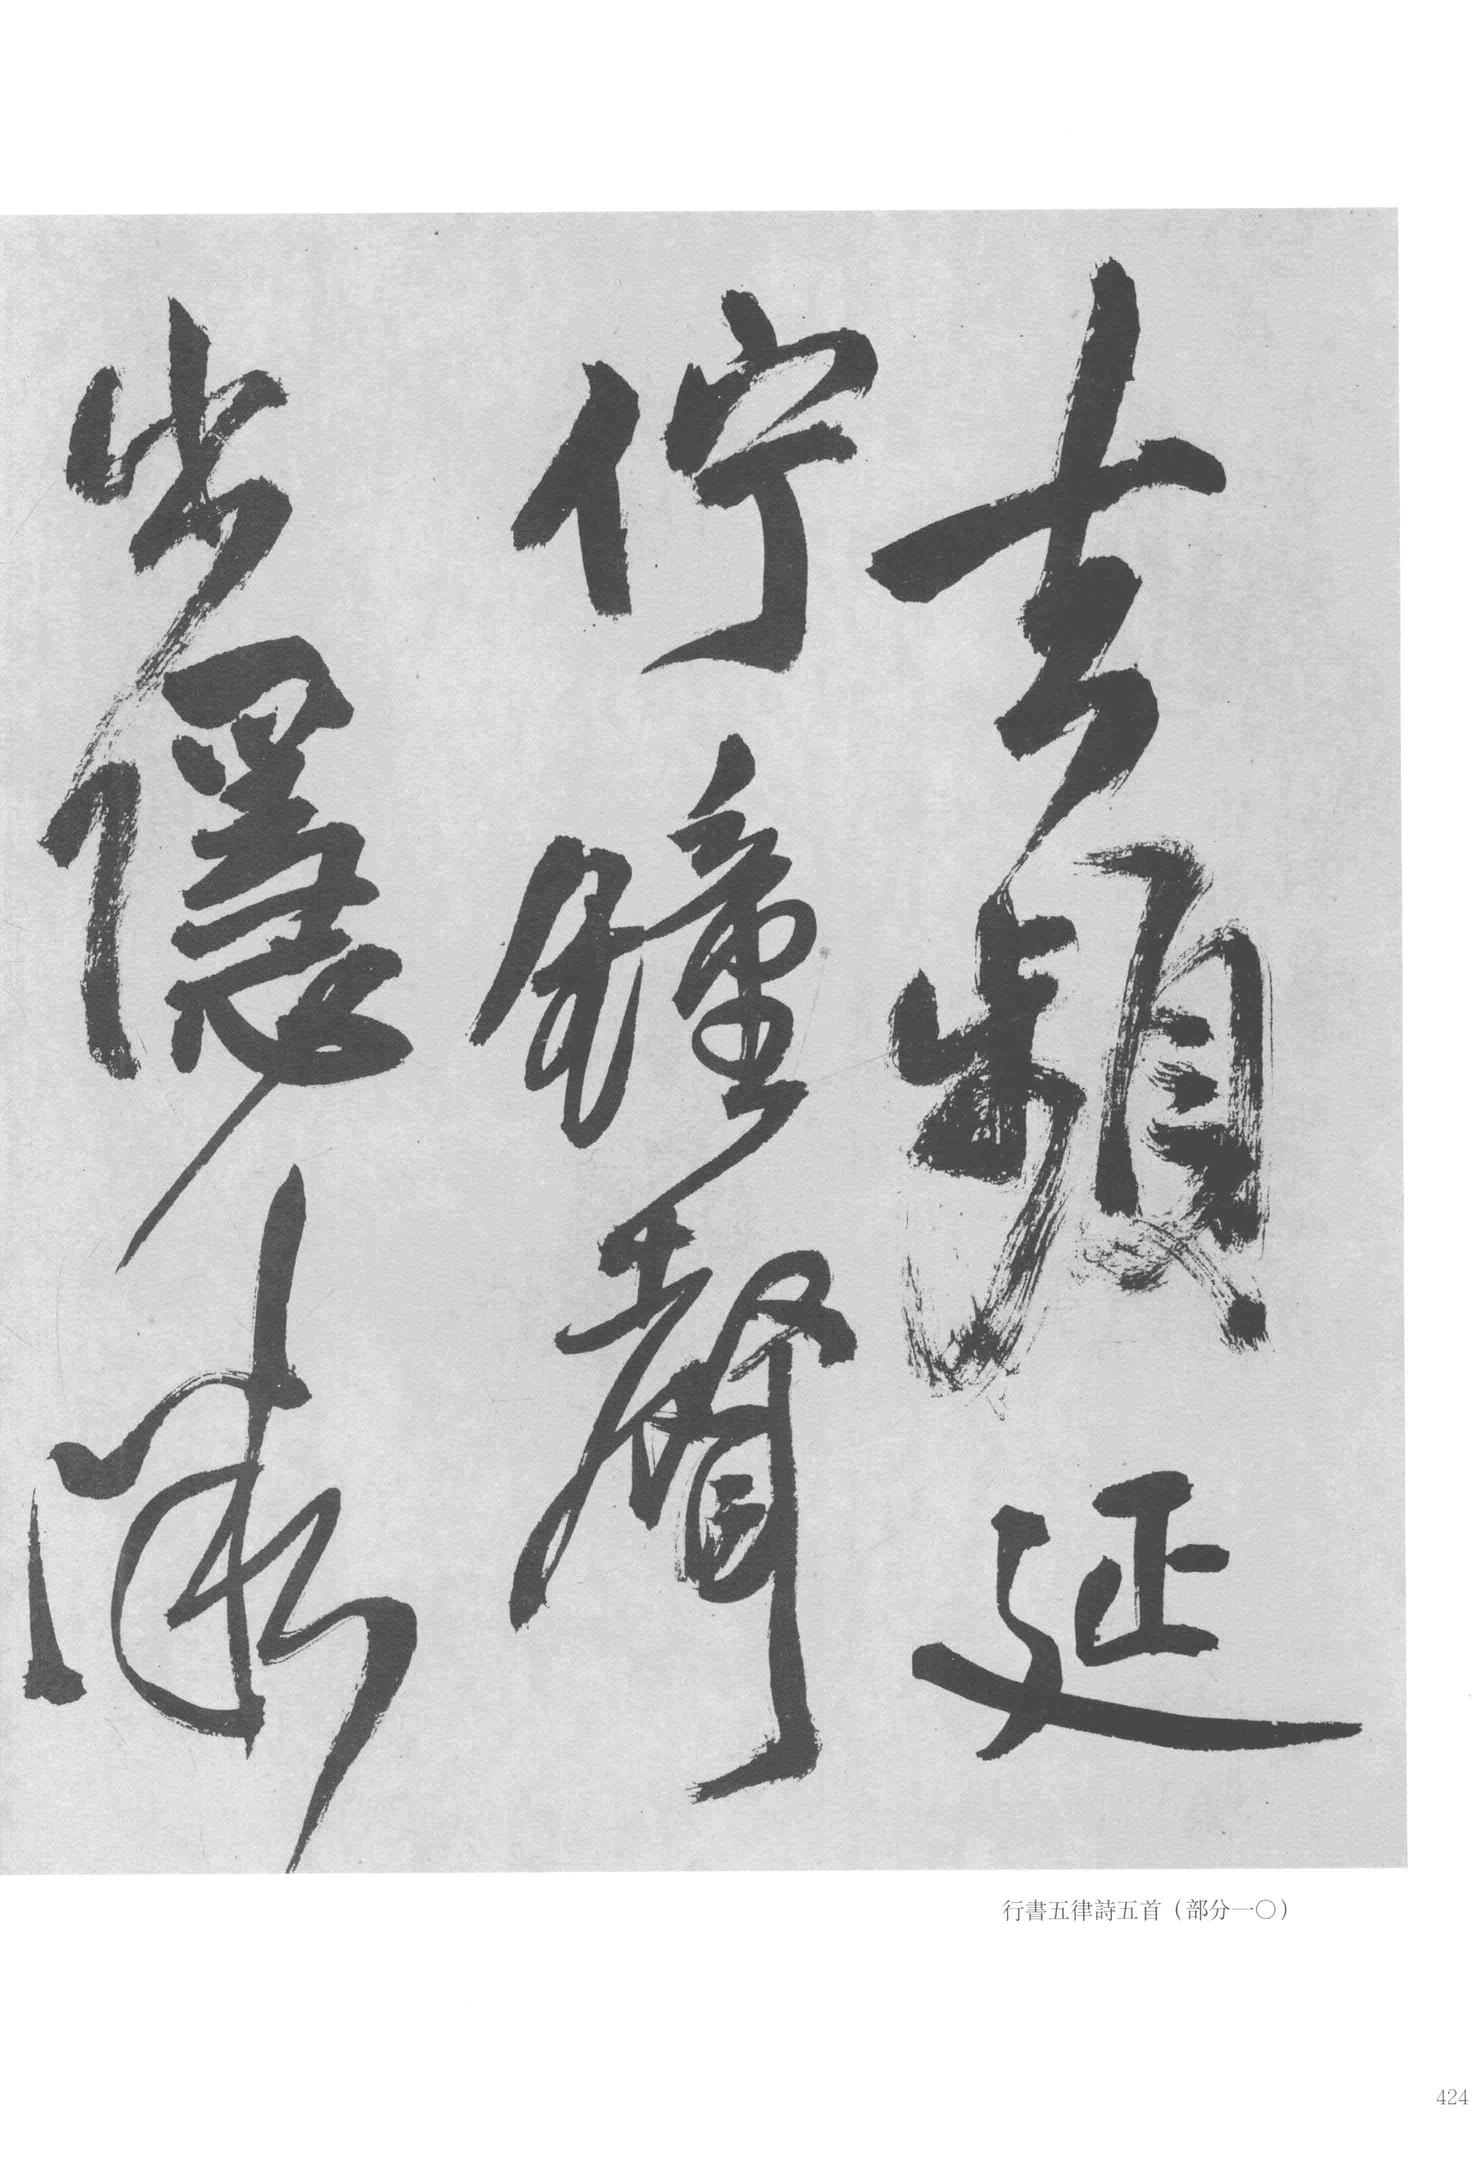 去頻延
佇鐘聲
出隱隱
行書五律詩五首（部分一〇）
424